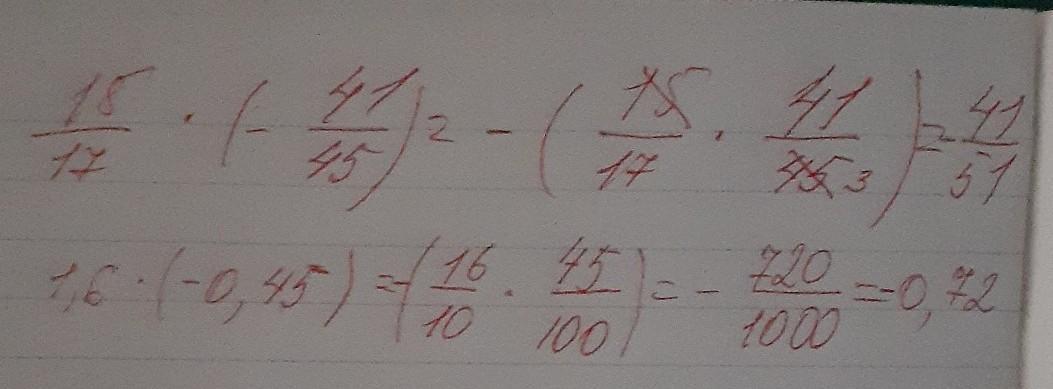 15/17 · (- 41/45) = - (15/17 · 41/45 3) = - 41/51
1,6 · (-0,45) = -(16/10 · 45/100) = - 720/1000 = -0,72